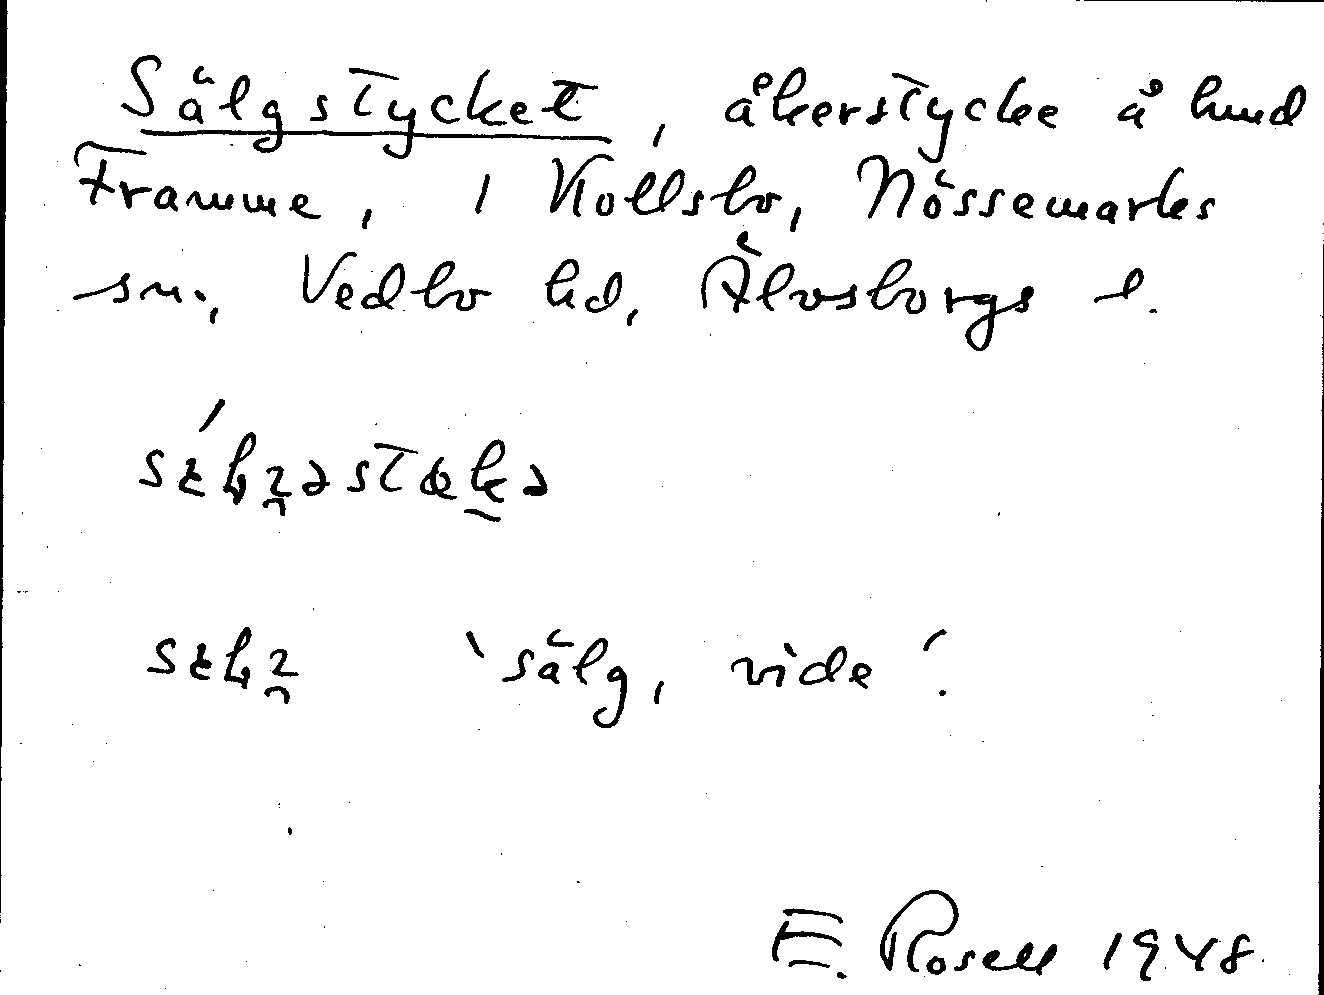 Sälgstycket, åkerstycke å lund
Framme, i Kollsbo, Nössemarks
sn., Vedbo hd, Älvsborgs l.
'sälg, vide'.
E. Rosell 1948